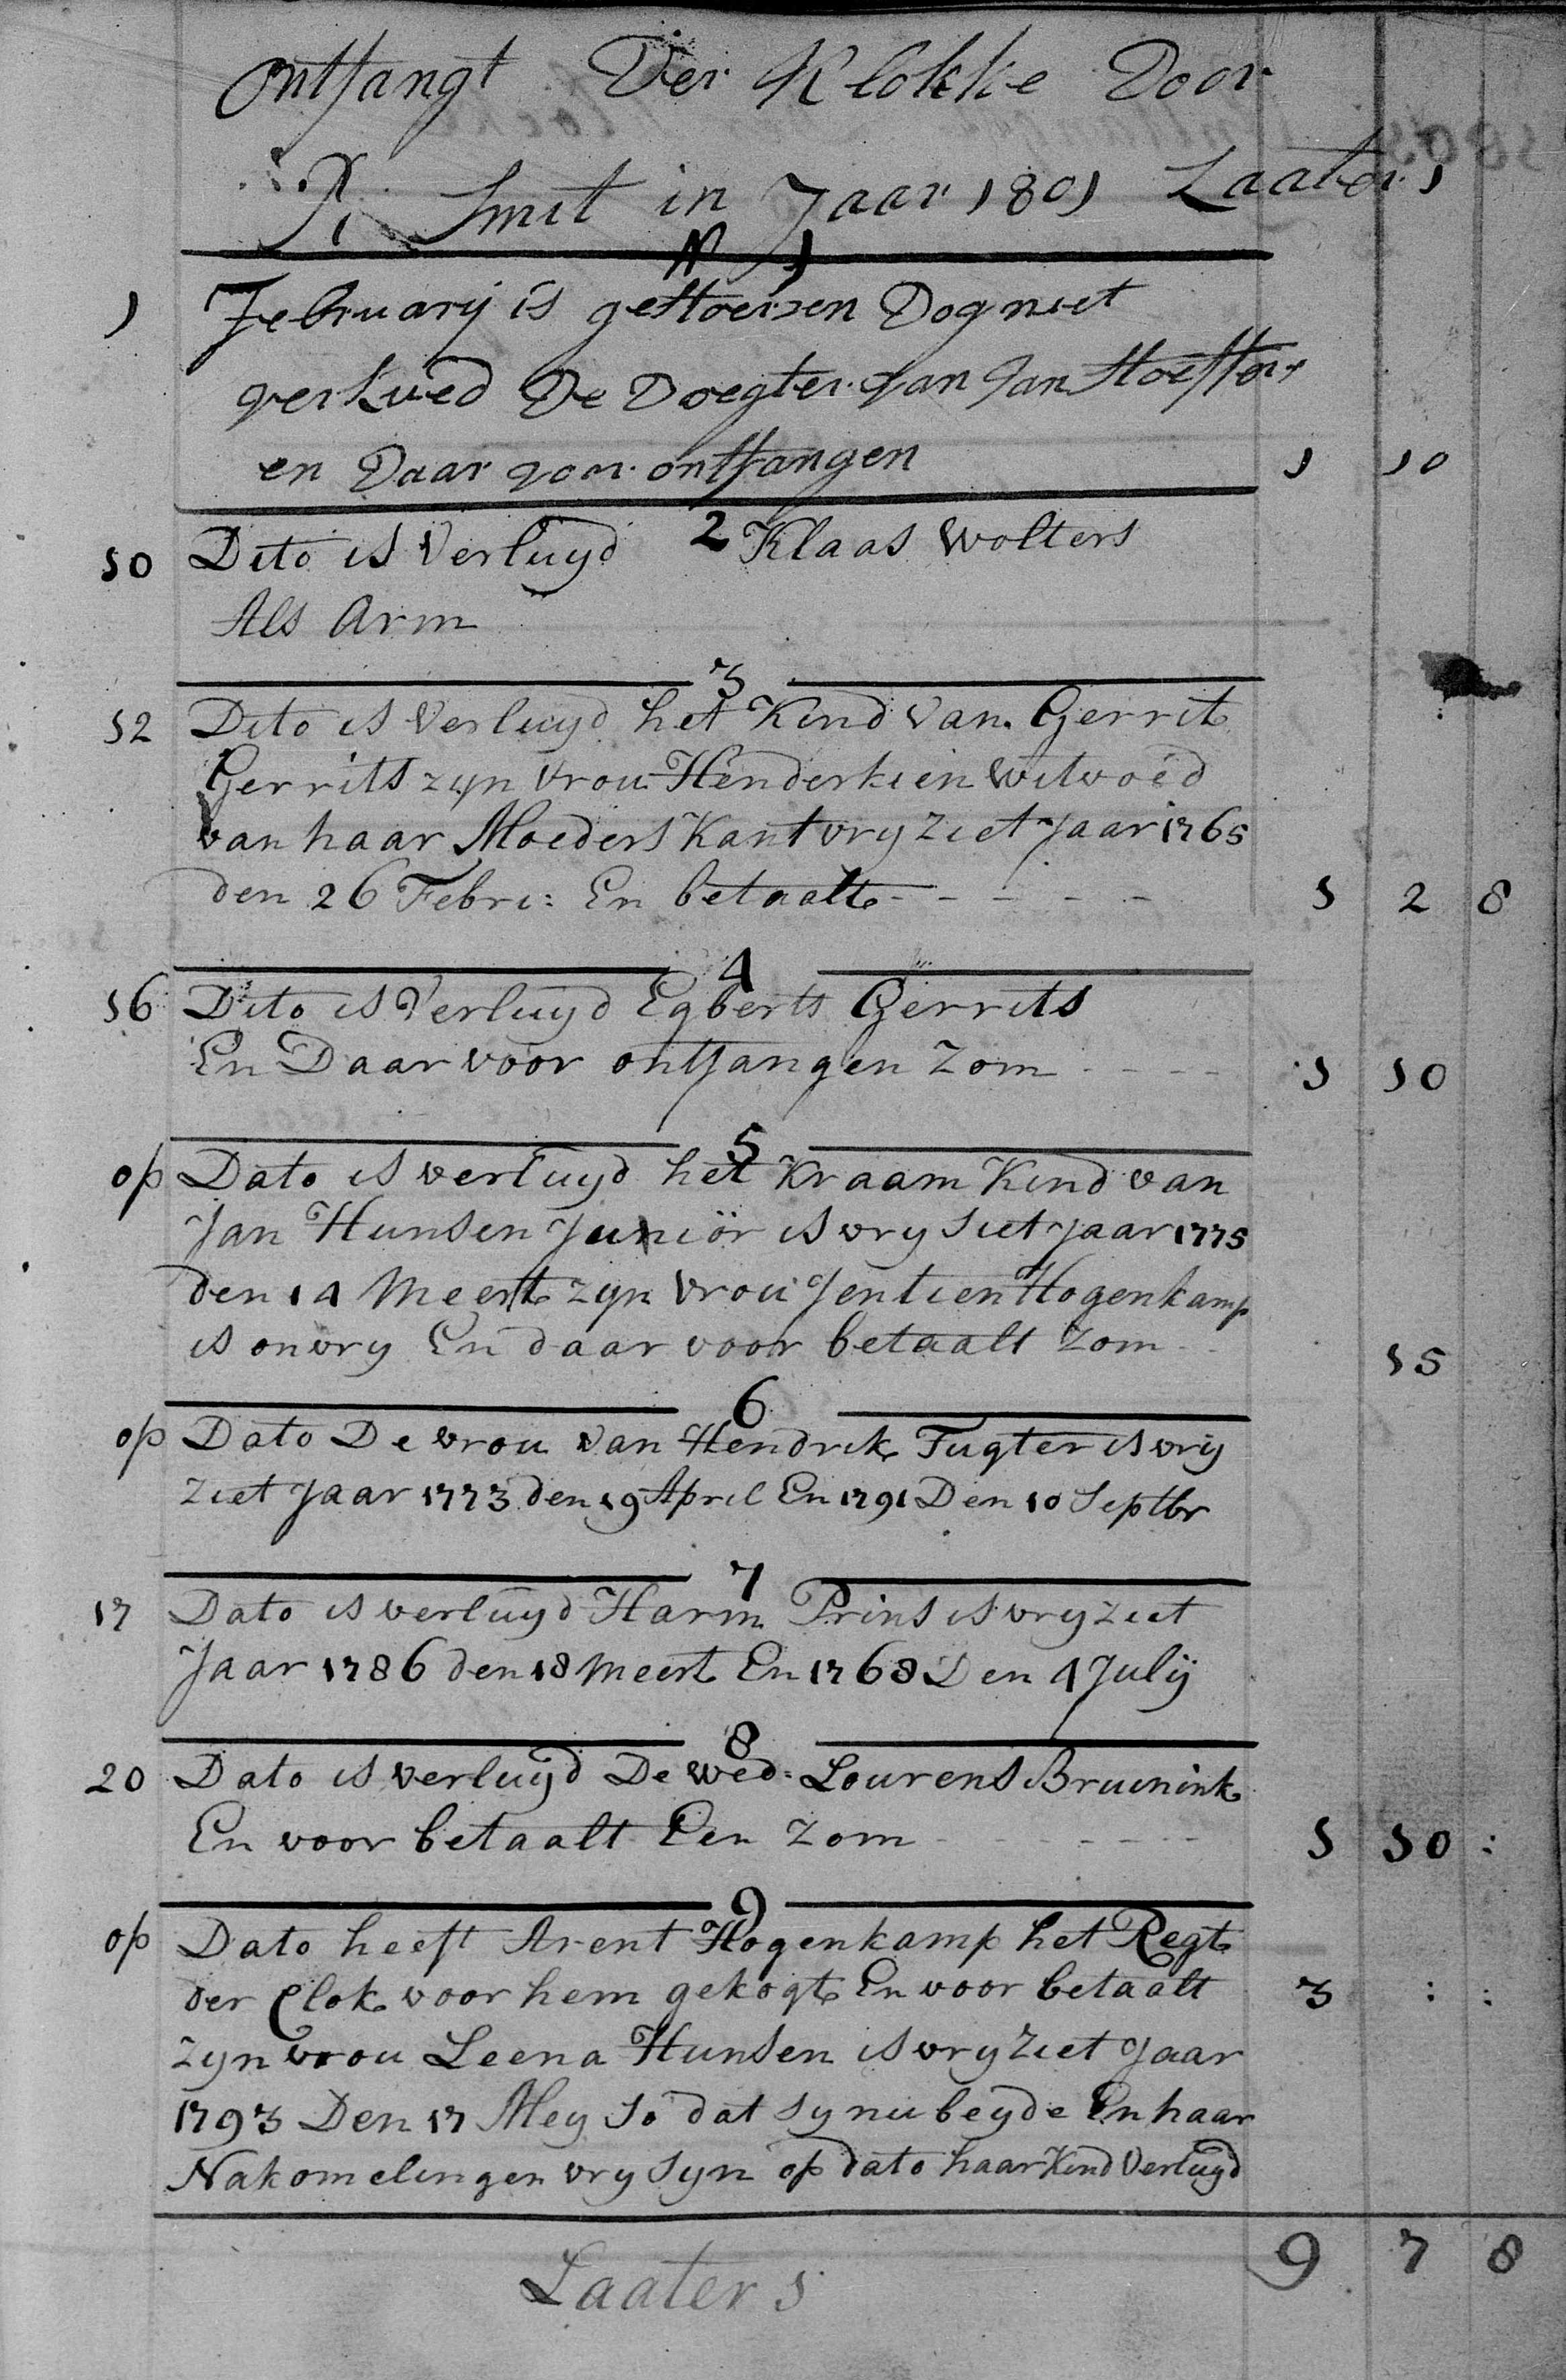 Ontfangt Der Klokke Door
R Smit in Jaar 1801 Laater 1
N 1
1 February is gestorven Dog niet
verlued De Doegter van Jan
en Daar voor ontfangen 1 10
2
10 Dito is Verluyd Klaas Wolters
Als Arm
3
12 Dito is Verluyd het Kind van Gerrit
Gerrits zyn vrou Henderkien Witvoed
van haar Moeders Kant vry ziet Jaar 1765
den 26 Febri: En betaalt - - - - - 1 2 8
4
16 Dito is Verluyd Egberts Gerrits
En Daar voor ontfangen Zom - - - - 1 10
5
op Dato is verluyd het Kraam Kind van
Jan Hunsen Juniör is vry siet Jaar 1775
den 14 Meert zyn vrou Jentien Hogenkamp
is onvry En daar voor betaalt Zom - - 15
6
op Dato De vrou van Hendrik Fugter is vrij
Ziet Jaar 1773 den 19 April En 1791 Den 10 Septbr
7
17 Dato is verluyd Harm Prins is vry ziet
Jaar 1786 den 18 Meert En 1768 Den 4 Julij
8
20 Dato is verluyd De Wed: Lourens Bruinink
En voor betaalt Een Zom - - - - - 1 10 :
9
op Dato heeft Arent Hogenkamp het Regt
der Clok voor hem gekogt En voor betaalt 3 : :
Zyn vrou Leena Hunsen is vry Ziet Jaar
1793 Den 17 Mey so dat sy nu beyde En haar
Nakomelingen vry syn op dato haar Kind Verluyd
9 7 8
Laater 1